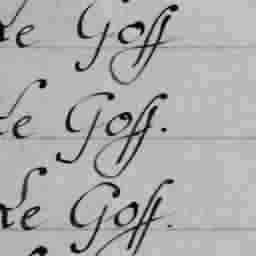 Le Goff
Le Goff.
Le Goff.